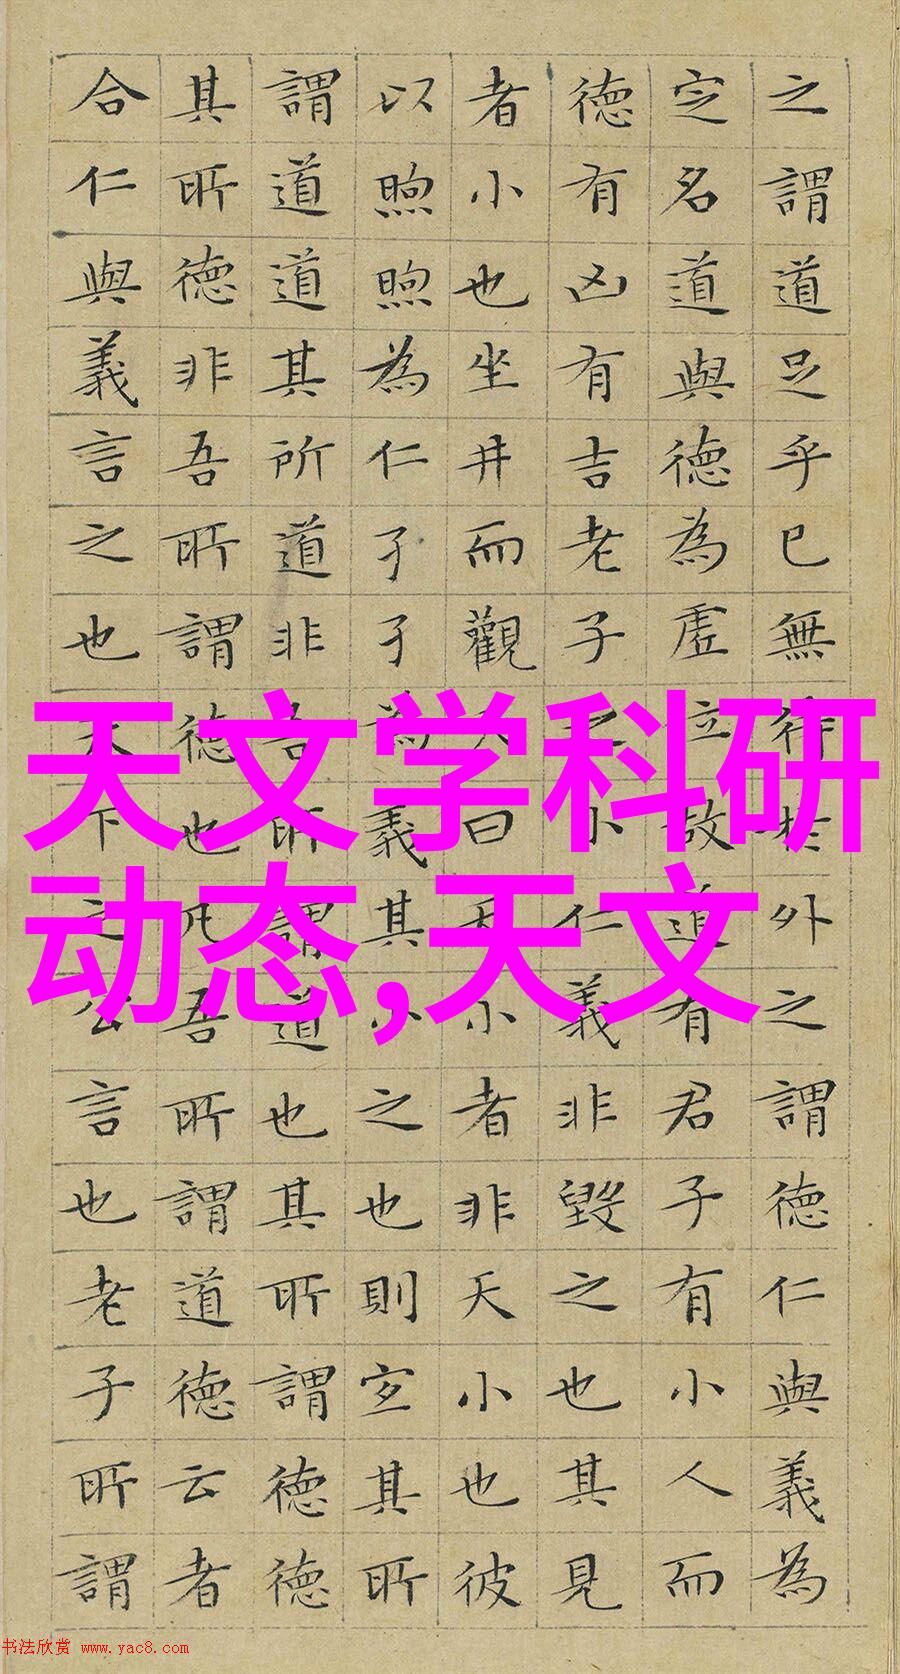 之謂道足乎已無待於外之謂德仁與義為
定名道與德為虛位故道有君子有小人而
德有凶有吉老子之小仁義非毀之也其見
者小也坐井而觀天曰天小者非天小也彼
以煦煦為仁孑孑為義其小之也則宜其所
謂道道其所道非吾所謂道也其所謂德德
其所德非吾所謂德也凡吾所謂道德云者
合仁與義言之也天下之公言也老子所謂
天文学科研
动态,天文
书法欣赏 www.yac8.com